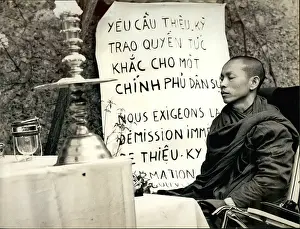 YÊU CẦU THIỆU-KỲ
TRAO QUYỀN TỨC
KHẮC CHO MỘT
CHÍNH PHỦ DÂN SỰ
NOUS EXIGEONS LA
DÉMISSION IMM
DE THIỆU-KY
RMATION